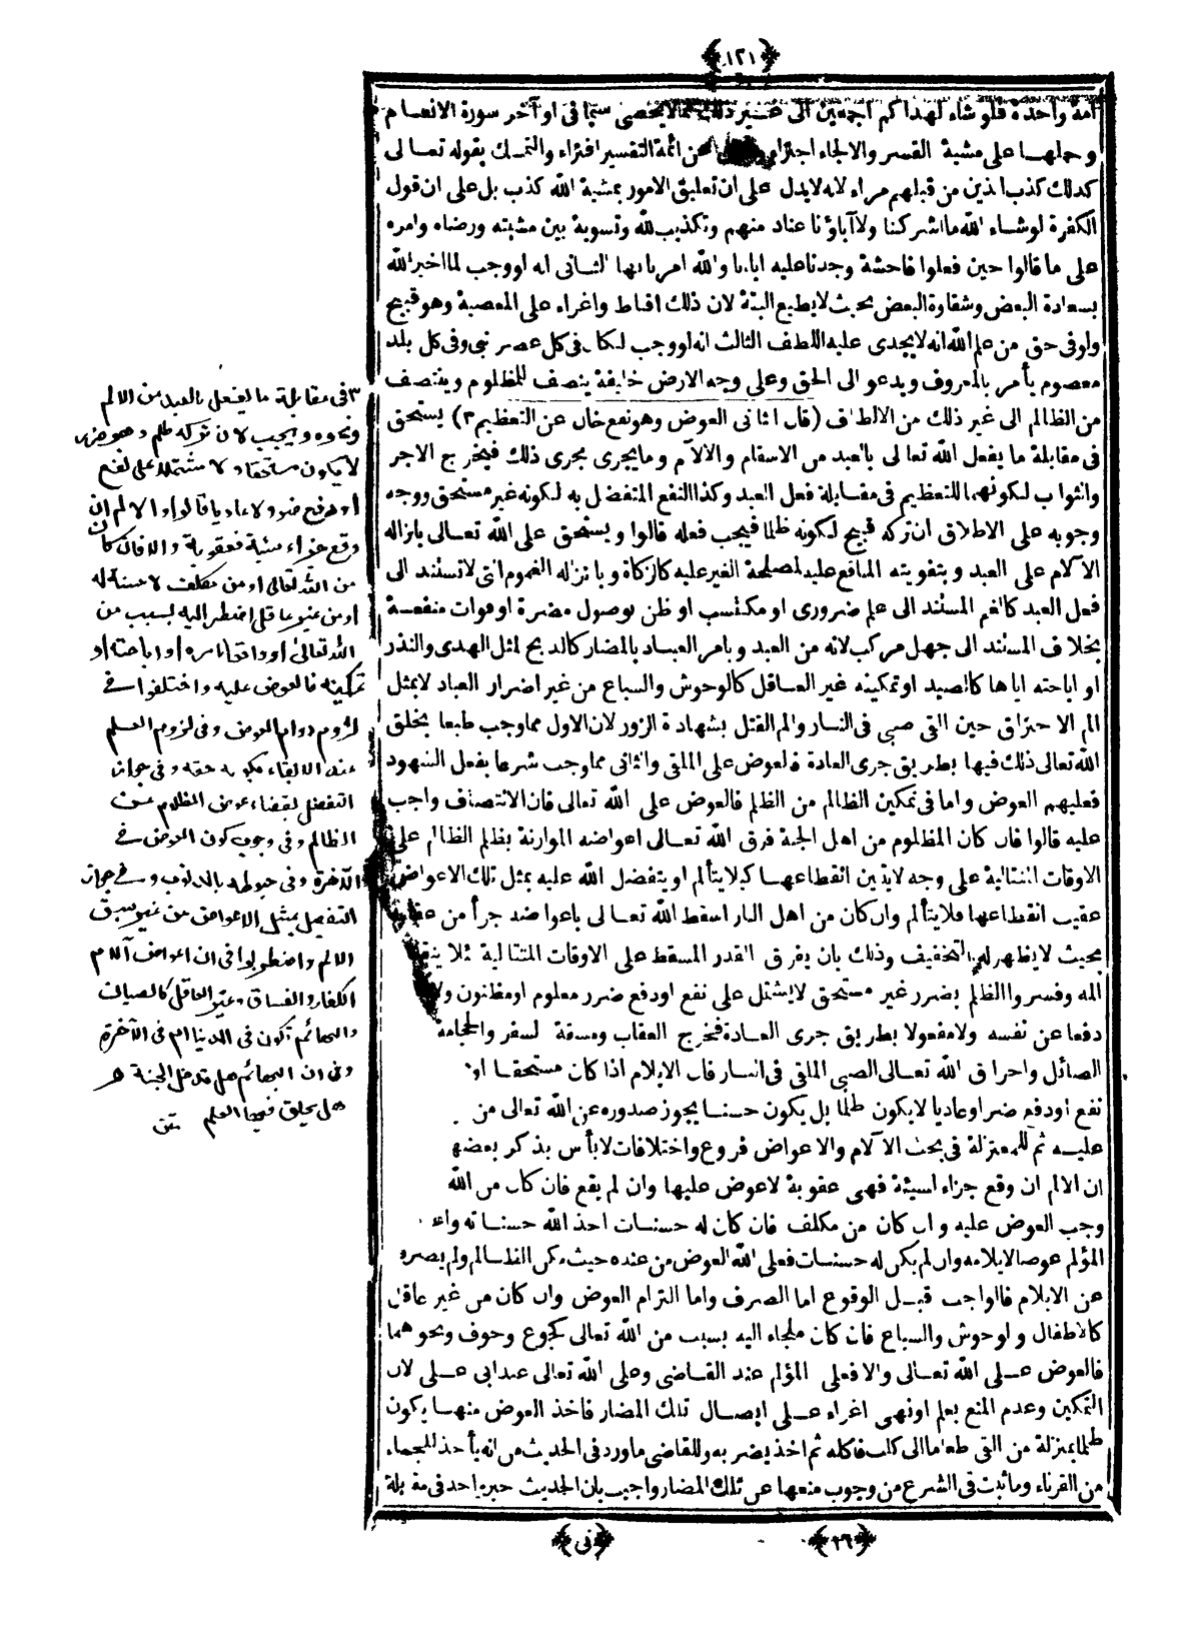 ﴿١٢١﴾
امة واحدة فلو شاء لهداكم اجمعين الى غير ذلك مما لا يحصى سيما فى اواخر سورة الانعام
وحملها على مشية القسر والالجاء اجتراء عن ائمة التفسير افتراء والتمسك بقوله تعالى
كذلك كذب الذين من قبلهم مراء لانه لا يدل على ان تعليق الامور بمشية الله كذب بل على ان قول
الكفرة لو شاء الله ما اشركنا ولا آباؤنا عناد منهم وتكذيب لله وتسوية بين مشيته ورضاه وامره
على ما قالوا حين فعلوا فاحشة وجدنا عليه اباءنا والله امرنا بها الثانى انه لو وجب لما اخبر الله
بسعادة البعض وشقاوة البعض بحيث لا يطيع البتة لان ذلك اقناط واغراء على المعصية وهو قبيح
ولو فى حق من علم الله انه لا يجدى عليه اللطف الثالث انه لو وجب لكان فى كل عصر نبى وفى كل بلد
معصوم يأمر بالمعروف ويدعو الى الحق وعلى وجه الارض خليفة ينصف للمظلوم وينتصف
من الظالم الى غير ذلك من الالطاف (قال الثانى العوض وهو نفع خال عن التعظيم ٣) يستحق
فى مقابلة ما يفعل الله تعالى بالعبد من الاسقام والآلام وما يجرى مجرى ذلك فيخرج الاجر
والثواب لكونهما للتعظيم فى مقابلة فعل العبد وكذا النفع المتفضل به لكونه غير مستحق ووجه
وجوبه على الاطلاق ان تركه قبيح لكونه ظلما فيجب فعله قالوا ويستحق على الله تعالى بانزاله
الآلام على العبد وبتفويته المنافع عليه لمصلحة الغير عليه كالزكاة وبانزاله الغموم التى لا تستند الى
فعل العبد كالغم المستند الى علم ضرورى او مكتسب او ظن بوصول مضرة او فوات منفعة
بخلاف المستند الى جهل مركب لانه من العبد وبامر العباد بالمضار كالذبح لمثل الهدى والنذر
او اباحته اياها كالصيد او تمكينه غير العاقل كالوحوش والسباع من غير اضرار العباد لا بمثل
الم الاحتراق حين القى صبى فى النار والم القتل بشهادة الزور لان الاول مما وجب طبعا بخلق
الله تعالى ذلك فيها بطريق جرى العادة فالعوض على الملقى والثانى مما وجب شرعا بفعل الشهود
فعليهم العوض واما فى تمكين الظالم من الظلم فالعوض على الله تعالى فان الانتصاف واجب
عليه قالوا فان كان المظلوم من اهل الجنة فرق الله تعالى اعواضه الموازنة بظلم الظالم على
الاوقات المتتالية على وجه لا يتبين انقطاعها كيلا يتألم او يتفضل الله عليه بمثل تلك الاعواض
عقيب انقطاعها فلا يتألم وان كان من اهل النار اسقط الله تعالى باعواضه جزأ من عقابه
بحيث لا يظهر له التخفيف وذلك بان يفرق القدر المسقط على الاوقات المتتالية لئلا ينقطع
المه وفسروا الظلم بضرر غير مستحق لا يشتمل على نفع او دفع ضرر معلوم او مظنون ولا
دفعا عن نفسه ولا مفعولا بطريق جرى العادة فخرج العقاب ومشقة السفر والحجامة
الصائل واحراق الله تعالى الصبى الملقى فى النار فان الايلام اذا كان مستحقا او
نفع او دفع ضر او عاديا لا يكون ظلما بل يكون حسنا يجوز صدوره عن الله تعالى من
عليه ثم للمعتزلة فى بحث الآلام والاعواض فروع واختلافات لا بأس بذكر بعضها
ان الالم ان وقع جزاء لسيئة فهى عقوبة لا عوض عليها وان لم يقع فان كان من الله
وجب العوض عليه وان كان من مكلف فان كان له حسنات اخذ الله حسناته
المؤلم عوضا لايلامه وان لم يكن له حسنات فعلى الله العوض من عنده حيث مكن الظالم ولم يصرفه
عن الايلام فالواجب قبل الوقوع اما الصرف واما التزام العوض وان كان من غير عاقل
كالاطفال والوحوش والسباع فان كان ملجاء اليه بسبب من الله تعالى كجوع وخوف ونحوهما
فالعوض على الله تعالى والا فعلى المؤلم عند القاضى وعلى الله تعالى عند ابى على لان
التمكين وعدم المنع بعلم او نهى اغراء على ايصال تلك المضار فاخذ العوض منها يكون
ظلما بمنزلة من القى طعاما الى كلب فاكله ثم اخذ يضربه وللقاضى ما ورد فى الحديث من انه يأخذ للجماء
من القرناء وما ثبت فى الشرع من وجوب منعها عن تلك المضار واجيب بان الحديث خبر واحد فى مقابلة
٣ فى مقابلة ما يفعل بالعبد من الالم
ونحوه ويجب لان تركه ظلم وهو ضرر
لا يكون مستحقا ولا مشتملا على نفع
او دفع ضر ولا عاديا قالوا والالم ان
وقع جزاء سيئة فعقوبة والا فان كان
من الله تعالى او من مكلف لا حسنة له
او من غير عاقل اضطر اليه بسبب من
الله تعالى او وافق امره او اباحته او
تمكينه فالعوض عليه واختلفوا فى
لزوم دوام العوض وفى لزوم العلم
عند الايفاء بكونه حقه وفى جواز
التفضل بقضاء عوض المظلوم عن
الظالم وفى وجوب كون العوض فى
الآخرة وفى حبوطه بالذنوب وفى جواز
التفضل بمثل الاعواض من غير سبق
الالم واضطربوا فى ان اعواض آلام
الكفار والفساق وغير العاقل كالصبيان
والبهائم تكون فى الدنيا ام فى الآخرة
وفى ان البهائم هل تدخل الجنة
هل يخلق فيها العلم متن
﴿١٦﴾ ﴿فى﴾